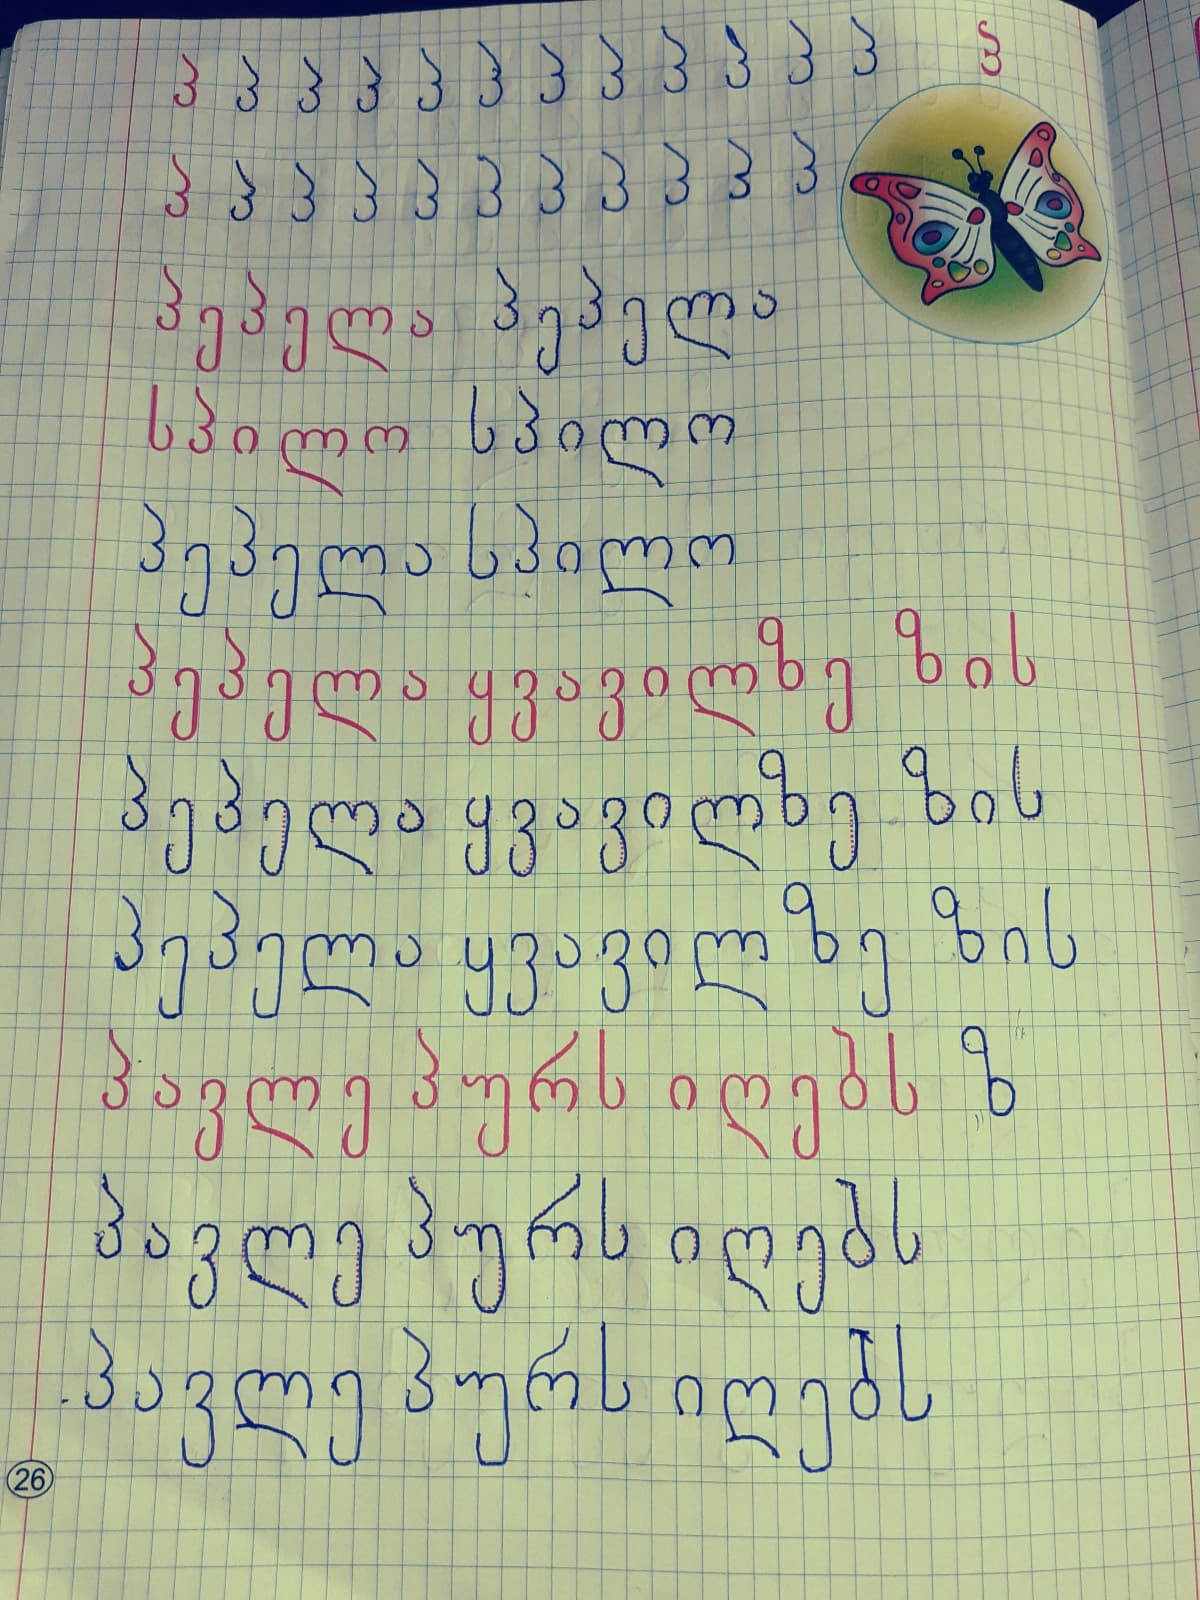 პ პ პ პ პ პ პ პ პ პ პ პ პ
პ პ პ პ პ პ პ პ პ პ პ
პეპელა პეპელა
სპილო სპილო
პეპელა სპილო
პეპელა ყვავილზე ზის
პეპელა ყვავილზე ზის
პეპელა ყვავილზე ზის
პავლე პურს იღებს ზ
პავლე პურს იღებს
პავლე პურს იღებს
26